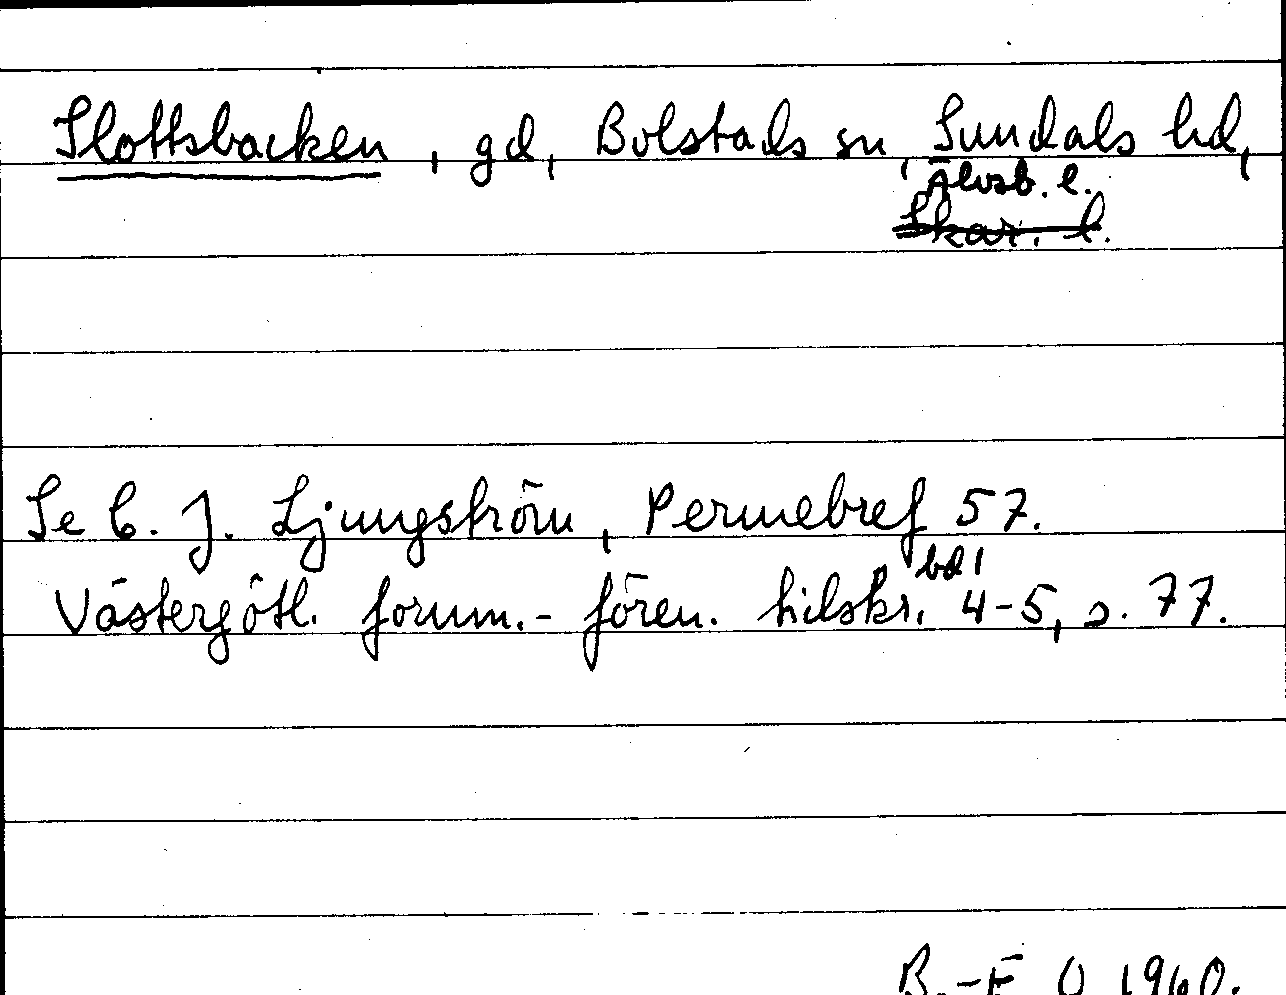 Slottsbacken, gd, Bolstads sn, Sundals hd,
Älvsb. l.
Skar. l.
Se C. J. Ljungström, Permebref 57.
Västergötl. fornm.-fören. tidskr. bd 1 4-5, s. 77.
B.-E. O 1960.